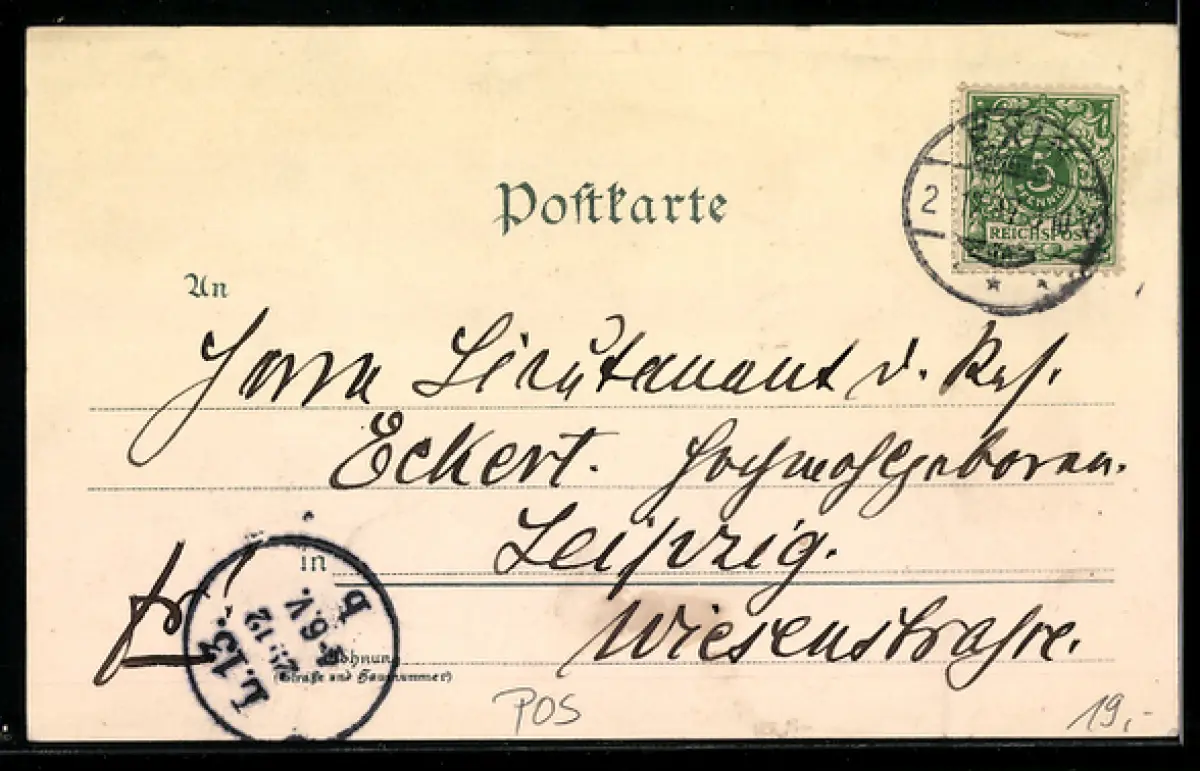 Postkarte
5
PFENNIG
REICHSPOST
2
An
Herrn Lieutenant d. Res.
Eckert. Hochwohlgeboren.
in Leipzig.
fr!
L.13.
12
6.V.
b
Wiesenstraße.
Wohnung
(Straße und Hausnummer)
POS
19,-